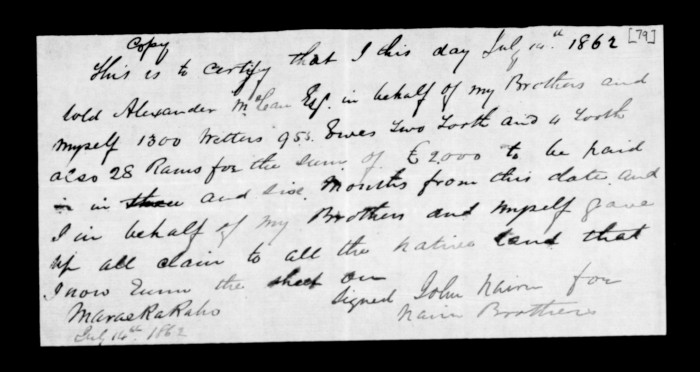 Copy [79]
This is to certify that I this day July 14th 1862
sold Alexander McLean Esq. in behalf of my Brothers and
myself 1300 Wethers 955 Ewes Two Tooth and 4 Tooth
also 28 Rams for the sum of £2000 to be paid
in in three and Six Months from this date and
I in behalf of my Brothers and myself gave
up all claim to all the native land that
I now runn the sheep on
signed John Nairn for
Maraekakaho Nairn Brothers
July 14th 1862